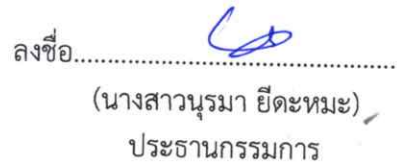 ลงชื่อ........................................
(นางสาวนุรมา ยีดะหมะ)
ประธานกรรมการ